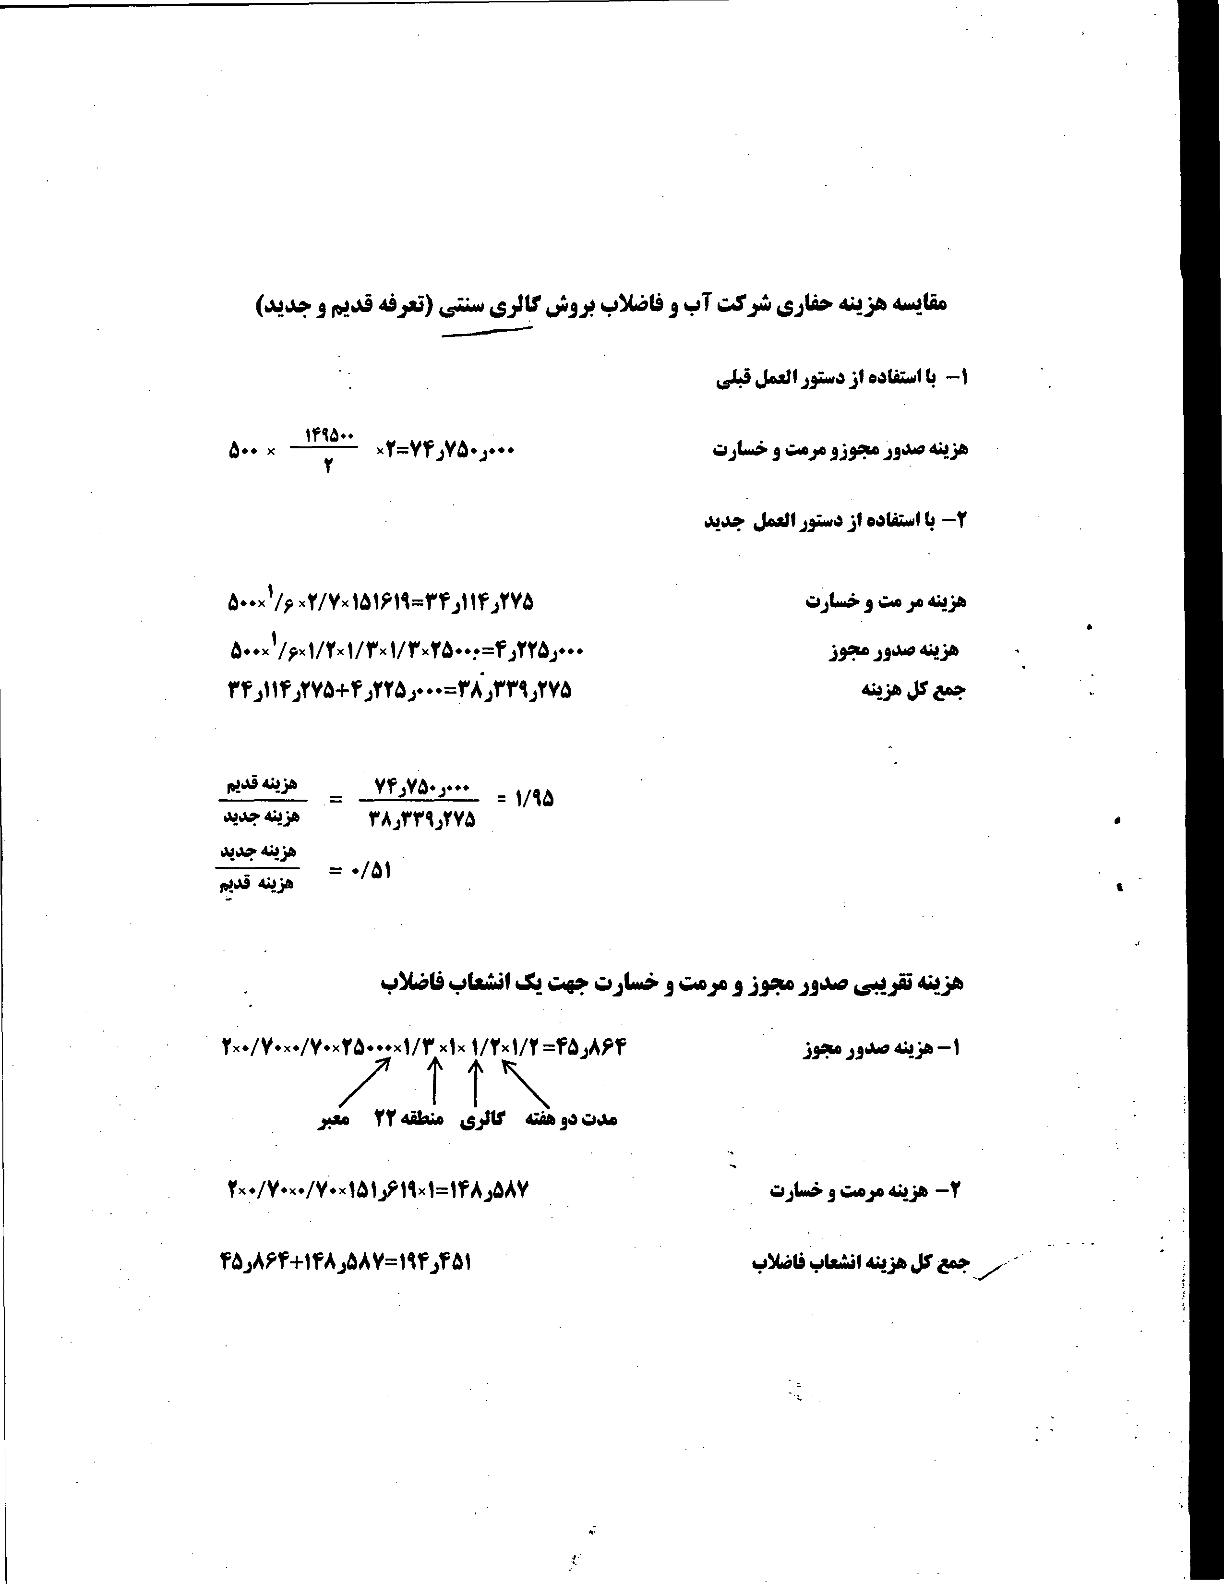 مقایسه هزینه حفاری شرکت آب و فاضلاب بروش گالری سنتی (تعرفه قدیم و جدید)
۱- با استفاده از دستور العمل قبلی
هزینه صدور مجوزو مرمت و خسارت ۵۰۰ × ۱۴۹۵۰۰/۲ ×۲=۷۴٫۷۵۰٫۰۰۰
۲- با استفاده از دستور العمل جدید
هزینه مر مت و خسارت ۵۰۰×۱/۶×۲/۷×۱۵۱۶۱۹=۳۴٫۱۱۴٫۲۷۵
هزینه صدور مجوز ۵۰۰×۱/۶×۱/۲×۱/۳×۱/۳×۲۵۰۰۰=۴٫۲۲۵٫۰۰۰
جمع کل هزینه ۳۴٫۱۱۴٫۲۷۵+۴٫۲۲۵٫۰۰۰=۳۸٫۳۳۹٫۲۷۵
هزینه قدیم / هزینه جدید = ۷۴٫۷۵۰٫۰۰۰ / ۳۸٫۳۳۹٫۲۷۵ = ۱/۹۵
هزینه جدید / هزینه قدیم = ۰/۵۱
هزینه تقریبی صدور مجوز و مرمت و خسارت جهت یک انشعاب فاضلاب
۱- هزینه صدور مجوز ۲×۰/۷۰×۰/۷۰×۲۵۰۰۰×۱/۳×۱×۱/۲×۱/۲=۴۵٫۸۶۴
معبر منطقه ۲۲ گالری مدت دو هفته
۲- هزینه مرمت و خسارت ۲×۰/۷۰×۰/۷۰×۱۵۱٫۶۱۹×۱=۱۴۸٫۵۸۷
جمع کل هزینه انشعاب فاضلاب ۴۵٫۸۶۴+۱۴۸٫۵۸۷=۱۹۴٫۴۵۱